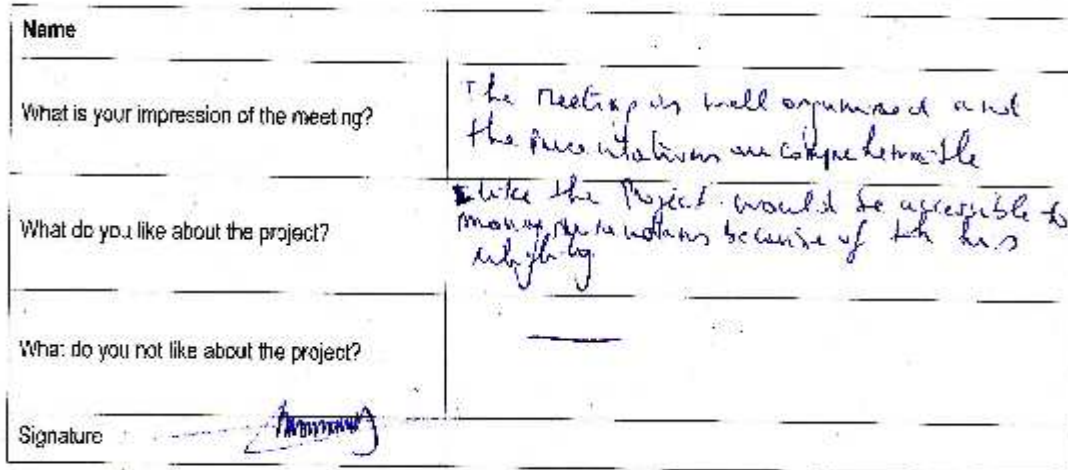 Name
What is your impression of the meeting?
The meeting is well organised and
the presentations are comprehensible
What do you like about the project?
I like the Project would be accessible to
because of
What do you not like about the project?
Signature